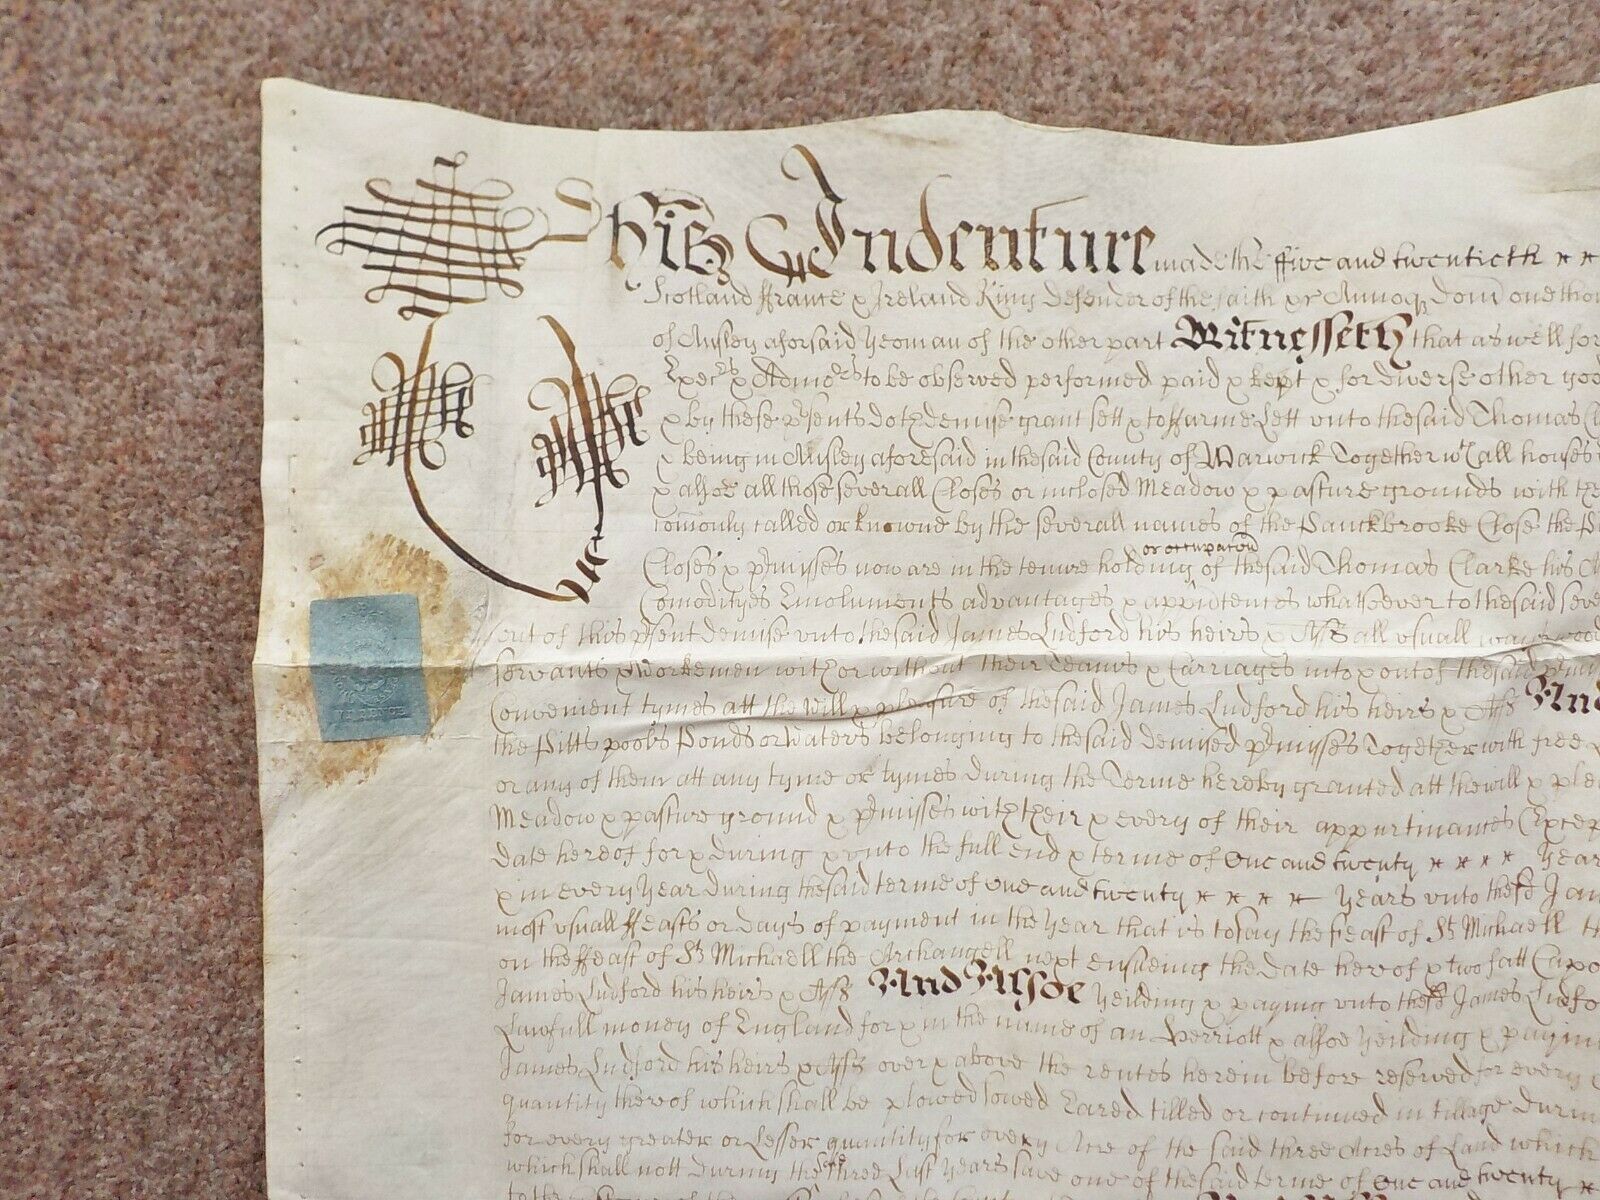 This Indenture made the ffive and twentieth * *
Scotland ffrance & Ireland King defender of the faith &c Annoq dom one thou
of Ansley aforsaid Yeoman of the other part Witnesseth that as well for
Exec:rs & Admo:rs to be observed performed paid & kept & for diverse other goo
& by these p'sents doth demise grant sett & to ffarme Lett unto the said Thomas C
& being in Ansley aforesaid in the said County of Warwick Together w:th all houses
& alsoe all those severall Closes or inclosed Meadow & pasture grounds with the
comonly called or knowne by the severall names of the Panckbrooke Close the P
or occupacon
Closes & p'misses now are in the tenure holding of the said Thomas Clarke his
Comodityes Emoluments advantages & appurtences whatsoever to the said seve
out of this p'sent demise unto the said James Ludford his heirs & Ass: all usuall wood
servants & Workemen with or without their Teames & Carriages into & out of the said p'mi
Convenient tymes att the will & pleasure of the said James Ludford his heirs & Ass: And
the Pitts pooles Ponds or Waters belonging to the said demised p'misses Together with free
or any of them att any tyme or tymes during the Terme hereby granted att the will & plea
Meadow & pasture ground & p'misses with their & every of their appurtinances (Excep
date hereof for & during & unto the full end & terme of One and twenty * * * * Year
& in every Year during the said terme of one and twenty * * * * Years unto the s:d Jam
most usuall ffeasts or dayes of payment in the Year that is to say the feast of S:t Michaell
on the ffeast of S:t Michaell the Archangell next ensueing the date hereof & two fatt Capo
James Ludford his heirs & Ass: And Alsoe Yeilding & paying unto the s:d James Ludfo
Lawfull money of England for & in the name of an Herriott & alsoe Yeilding & payin
James Ludford his heirs & Ass: over & above the rentes herein before reserved for every
quantity thereof which shall be plowed sowed Eared tilled or continued in tillage durin
for every greater or Lesser quantity for every Acre of the said three Acres of Land which
which shall nott during the three Last Years save one of the said terme of One and twenty *
VI PENCE